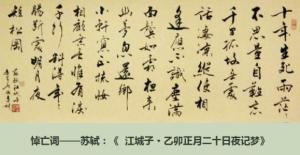 十年生死两茫茫
不思量自难忘
千里孤坟无处
话凄凉纵使相
逢应不识尘满
面鬓如霜夜来
幽梦忽还乡
小轩窗正梳妆
相顾无言惟有泪
千行料得年年
肠断处明月夜
短松冈
悼亡词——苏轼：《 江城子·乙卯正月二十日夜记梦》